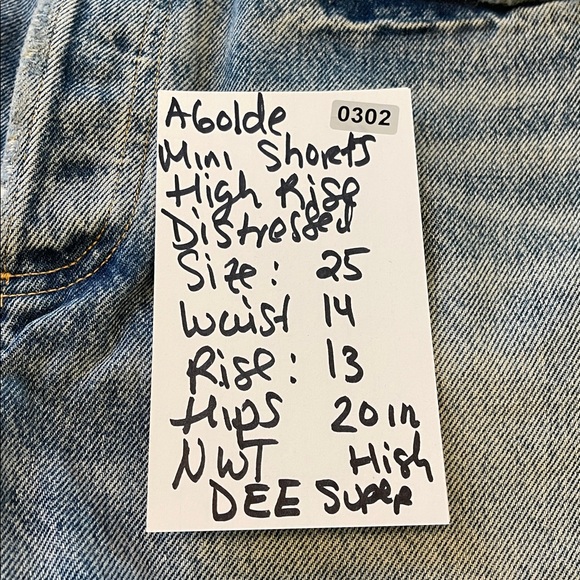 AGolde
0302
Mini Shorts
High Rise
Distressed
Size: 25
Waist 14
Rise: 13
Hips 20 in
NWT High
DEE Super